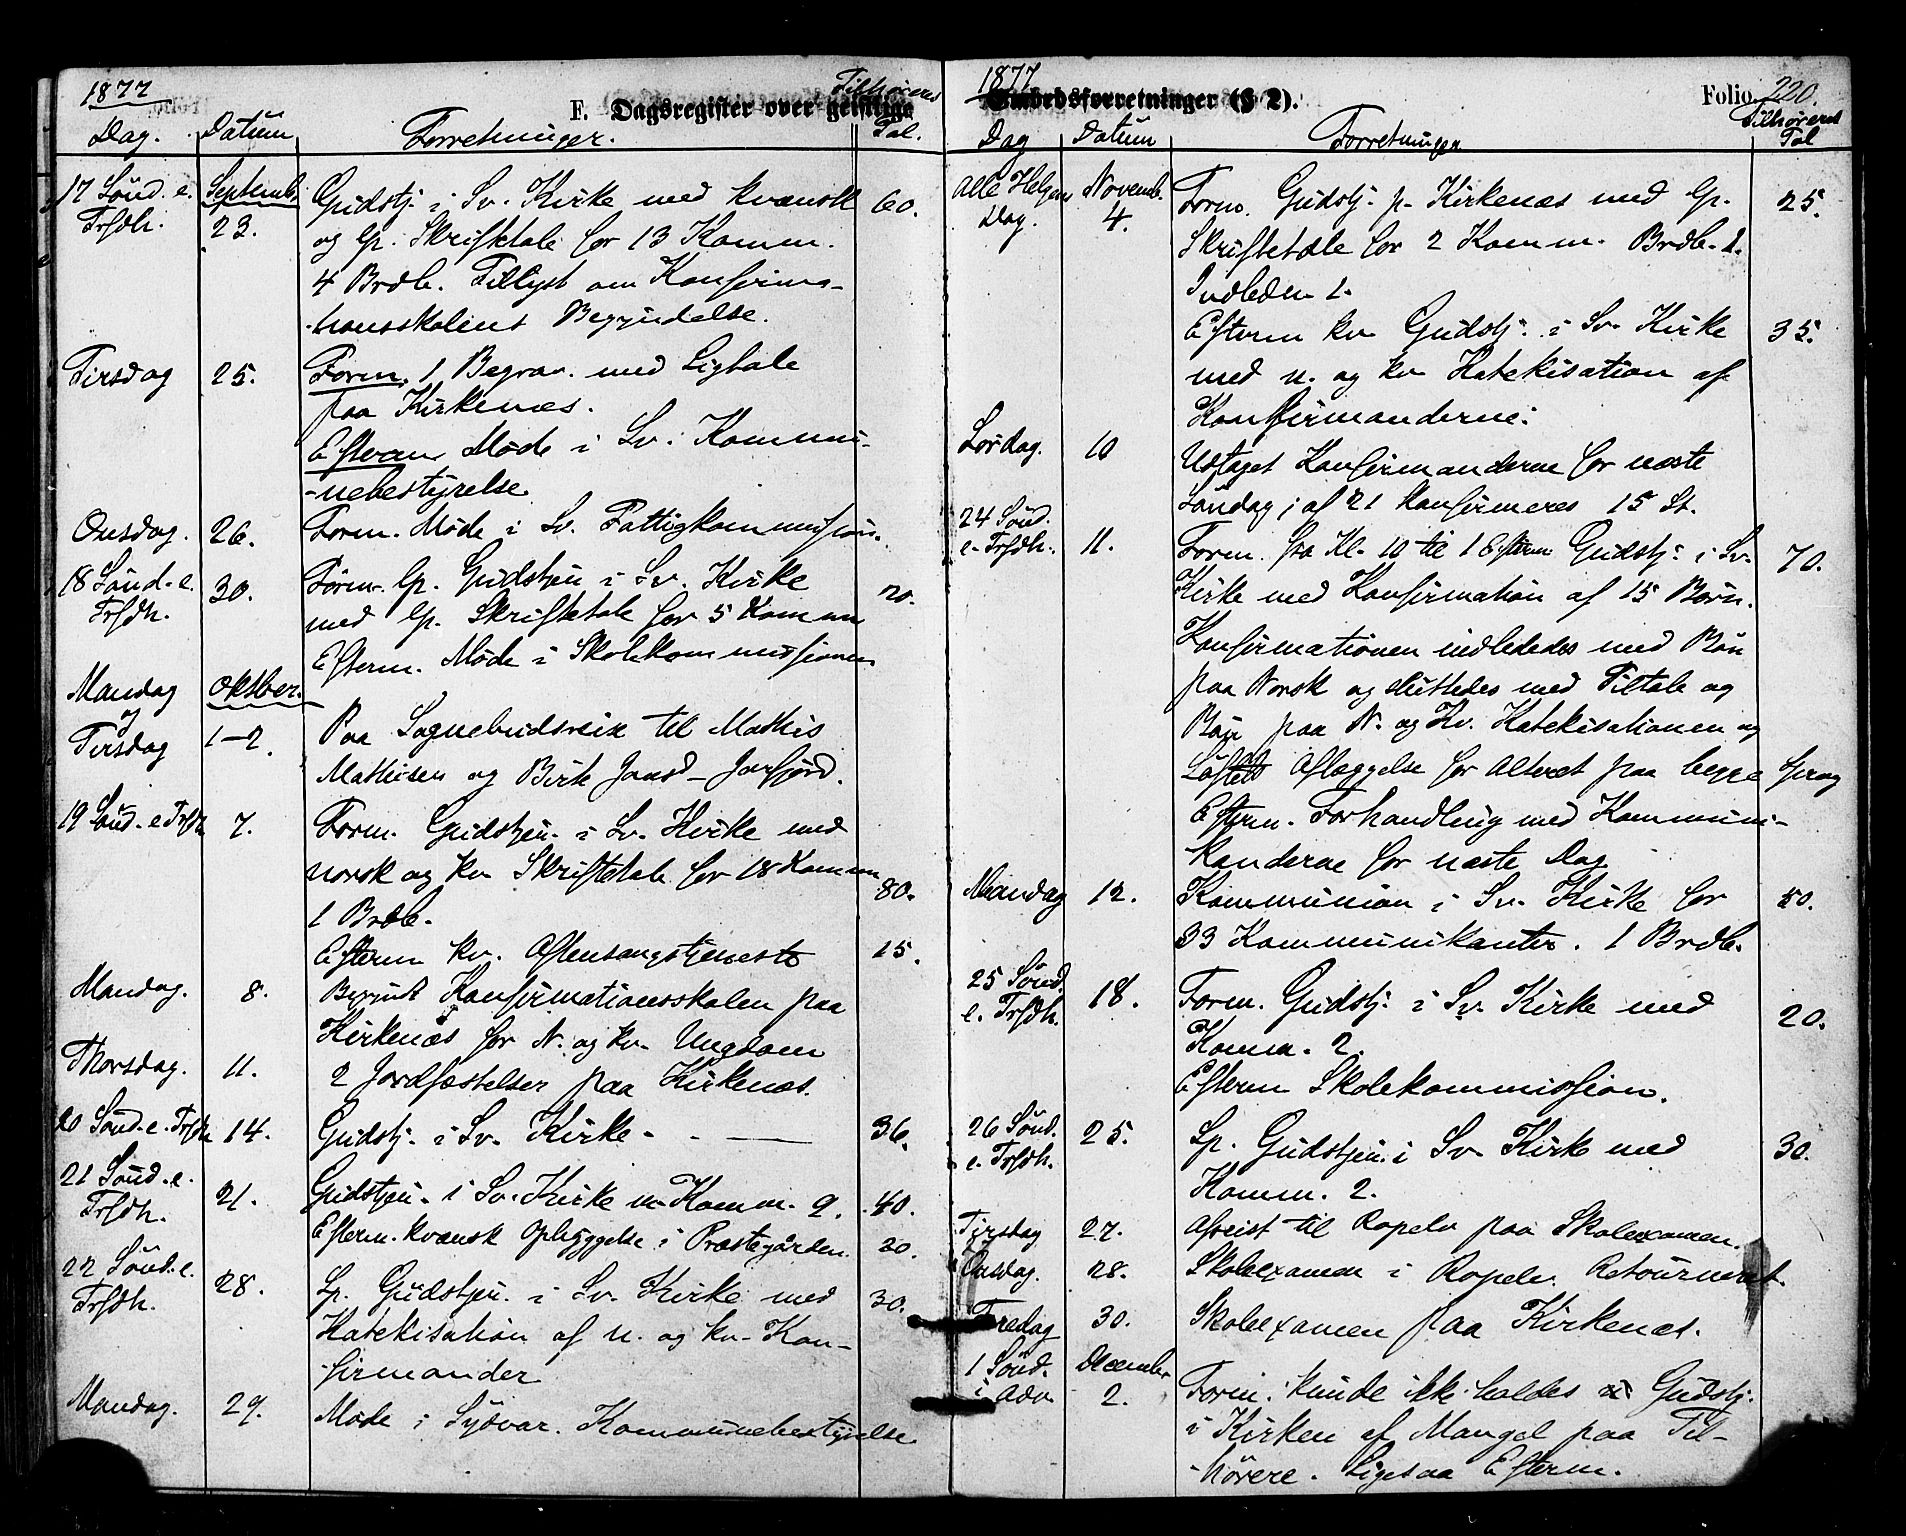 1877
F. Dagsregister over geistlige
Tilhøreres
Dag. Datum Forretninger. Tal.
17 Sönd. e. Septemb. Gudstj. i Sv. Kirke med kvænsk 60.
Trfdh. 23. og lp. Skriftetale for 13 Komm.
4 Brdb. Tillyst om Konfirma-
tionsskolens Begyndelse.
Tirsdag 25. Form. 1 Begrav. med Ligtale
paa Kirkenæs.
Efterm. Møde i Sv. Kommu-
-nebestyrelse
Onsdag. 26. Form. Møde i Sv. Fattigkommission.
18 Sönd. e. 30. Form. lp. Gudstjen i Sv. Kirke 20.
Trfdh. med lp. Skriftetale for 5 Komm
Efterm. Møde i Skolekommissionen
Mandag Oktober.
og
Tirsdag 1-2. Paa Sognebudsreise til Mathis
Mathisen og Birk Jonsd - Jarfjord.
19 Sönd. e Trfdh 7. Form. Gudstjen. i Sv. Kirke med
norsk og kv Skriftetale for 18 Komm 80.
1 Brdb.
Efterm kv. Aftensangstjeneste 15.
Mandag. 8. Begyndt Konfirmationsskolen paa
Kirkenæs for N. og kv. Ungdom
Thorsdag. 11. 2 Jordfæstelser paa Kirkenæs.
20 Sönd. e. Trfdh 14. Gudstj. i Sv. Kirke - 36.
21 Sönd. e. 21. Gudstjen. i Sv. Kirke m Komm. 9. 40.
Trfdh. Efterm. kvænsk Opbyggelse i Præstegården. 20.
22 Sönd. e. 28. Lp. Gudstjen. i Sv. Kirke med 30.
Trfdh. Katekisation af n. og kv. Kon-
-firmander
Mandag. 29. Møde i Sydvar. Kommunebestyrelse
1877
Embedsforretninger (§ 2). Folio 220.
Tilhøreres
Dag Datum Forretninger Tal
Alle Helgens Novemb. Form. Gudstj. p. Kirkenæs med lp. 25.
Dag. 4. Skriftetale for 2 Komm. Brdb. 1.
Indleden 1.
Efterm kv Gudstj. i Sv. Kirke 35.
med n. og kv Katekisation af
Konfirmanderne.
Lørdag. 10 Udtaget Konfirmanderne for næste
Søndag; af 21 konfirmeres 15 St.
24 Sönd.
e. Trfdh. 11. Form. fra Kl. 10 til 1 Efterm Gudstj. i Sv. 70.
Kirke med Konfirmation af 15 Børn.
Konfirmationen indlededes med Bön
paa Norsk og sluttedes med Tiltale og
Bön paa N. og Kv. Katekisationen og
Løftets Aflæggelse for Alteret paa begge Sprog
Efterm. Forhandling med Kommuni-
kanderne for næste Dag
Mandag 12. Kommunion i Sv. Kirke for 50.
33 Kommunikanter. 1 Brdb.
25 Sönd. 18. Form. Gudstj. i Sv. Kirke med 20.
e. Trfdh. Komm. 2.
Efterm Skolekommission.
26 Sönd. 25. Lp. Gudstjen. i Sv Kirke med 30.
e. Trfdh. Komm. 2.
Tirsdag 27. Afreist til Ropelv paa Skolexamen.
Onsdag. 28. Skolexamen i Ropelv. Retourneret.
Fredag 30. Skolexamen paa Kirkenæs.
1 Sönd. December
i Adv 2. Form. kunde ikke holdes Gudstj.
i Kirken af Mangel paa Til-
-hörere. Ligesaa Efterm.